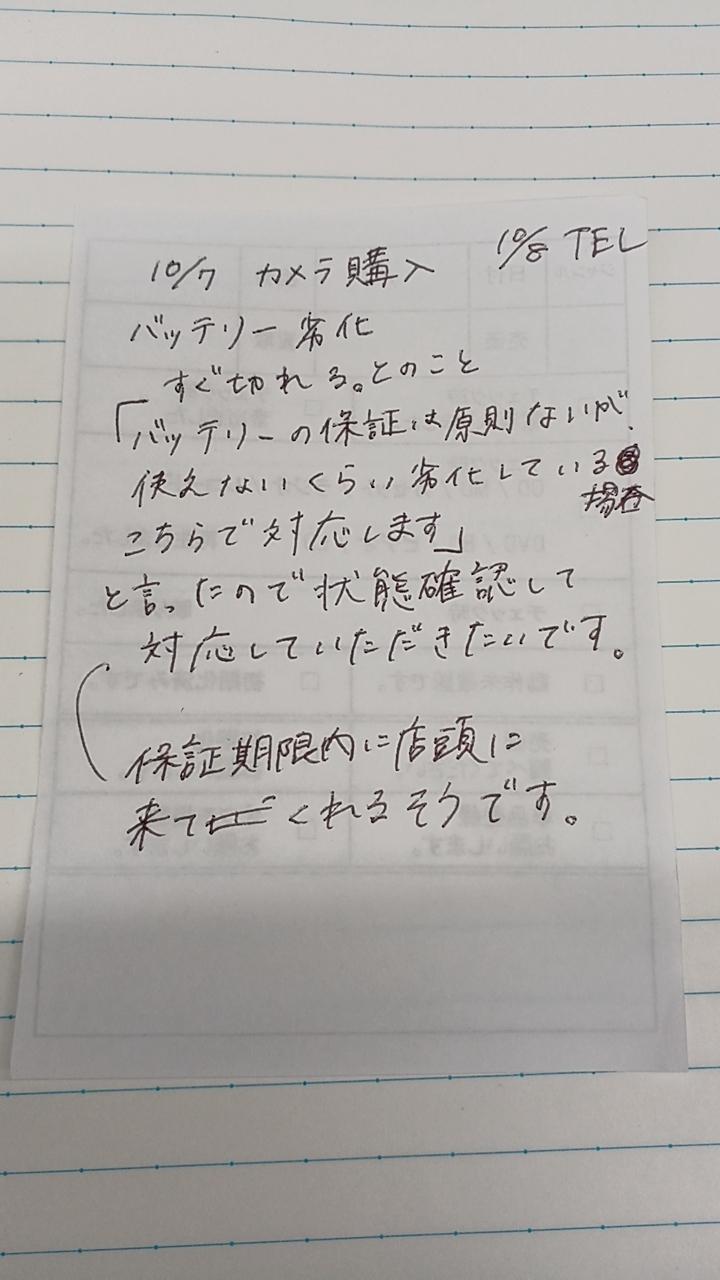 10/8 TEL
10/7 カメラ購入
バッテリー劣化
すぐ切れる。とのこと
「バッテリーの保証は原則ないが、
使えないくらい劣化している
場合
こちらで対応します」
と言ったので状態確認して
対応していただきたいです。
保証期限内に店頭に
来てくれるそうです。